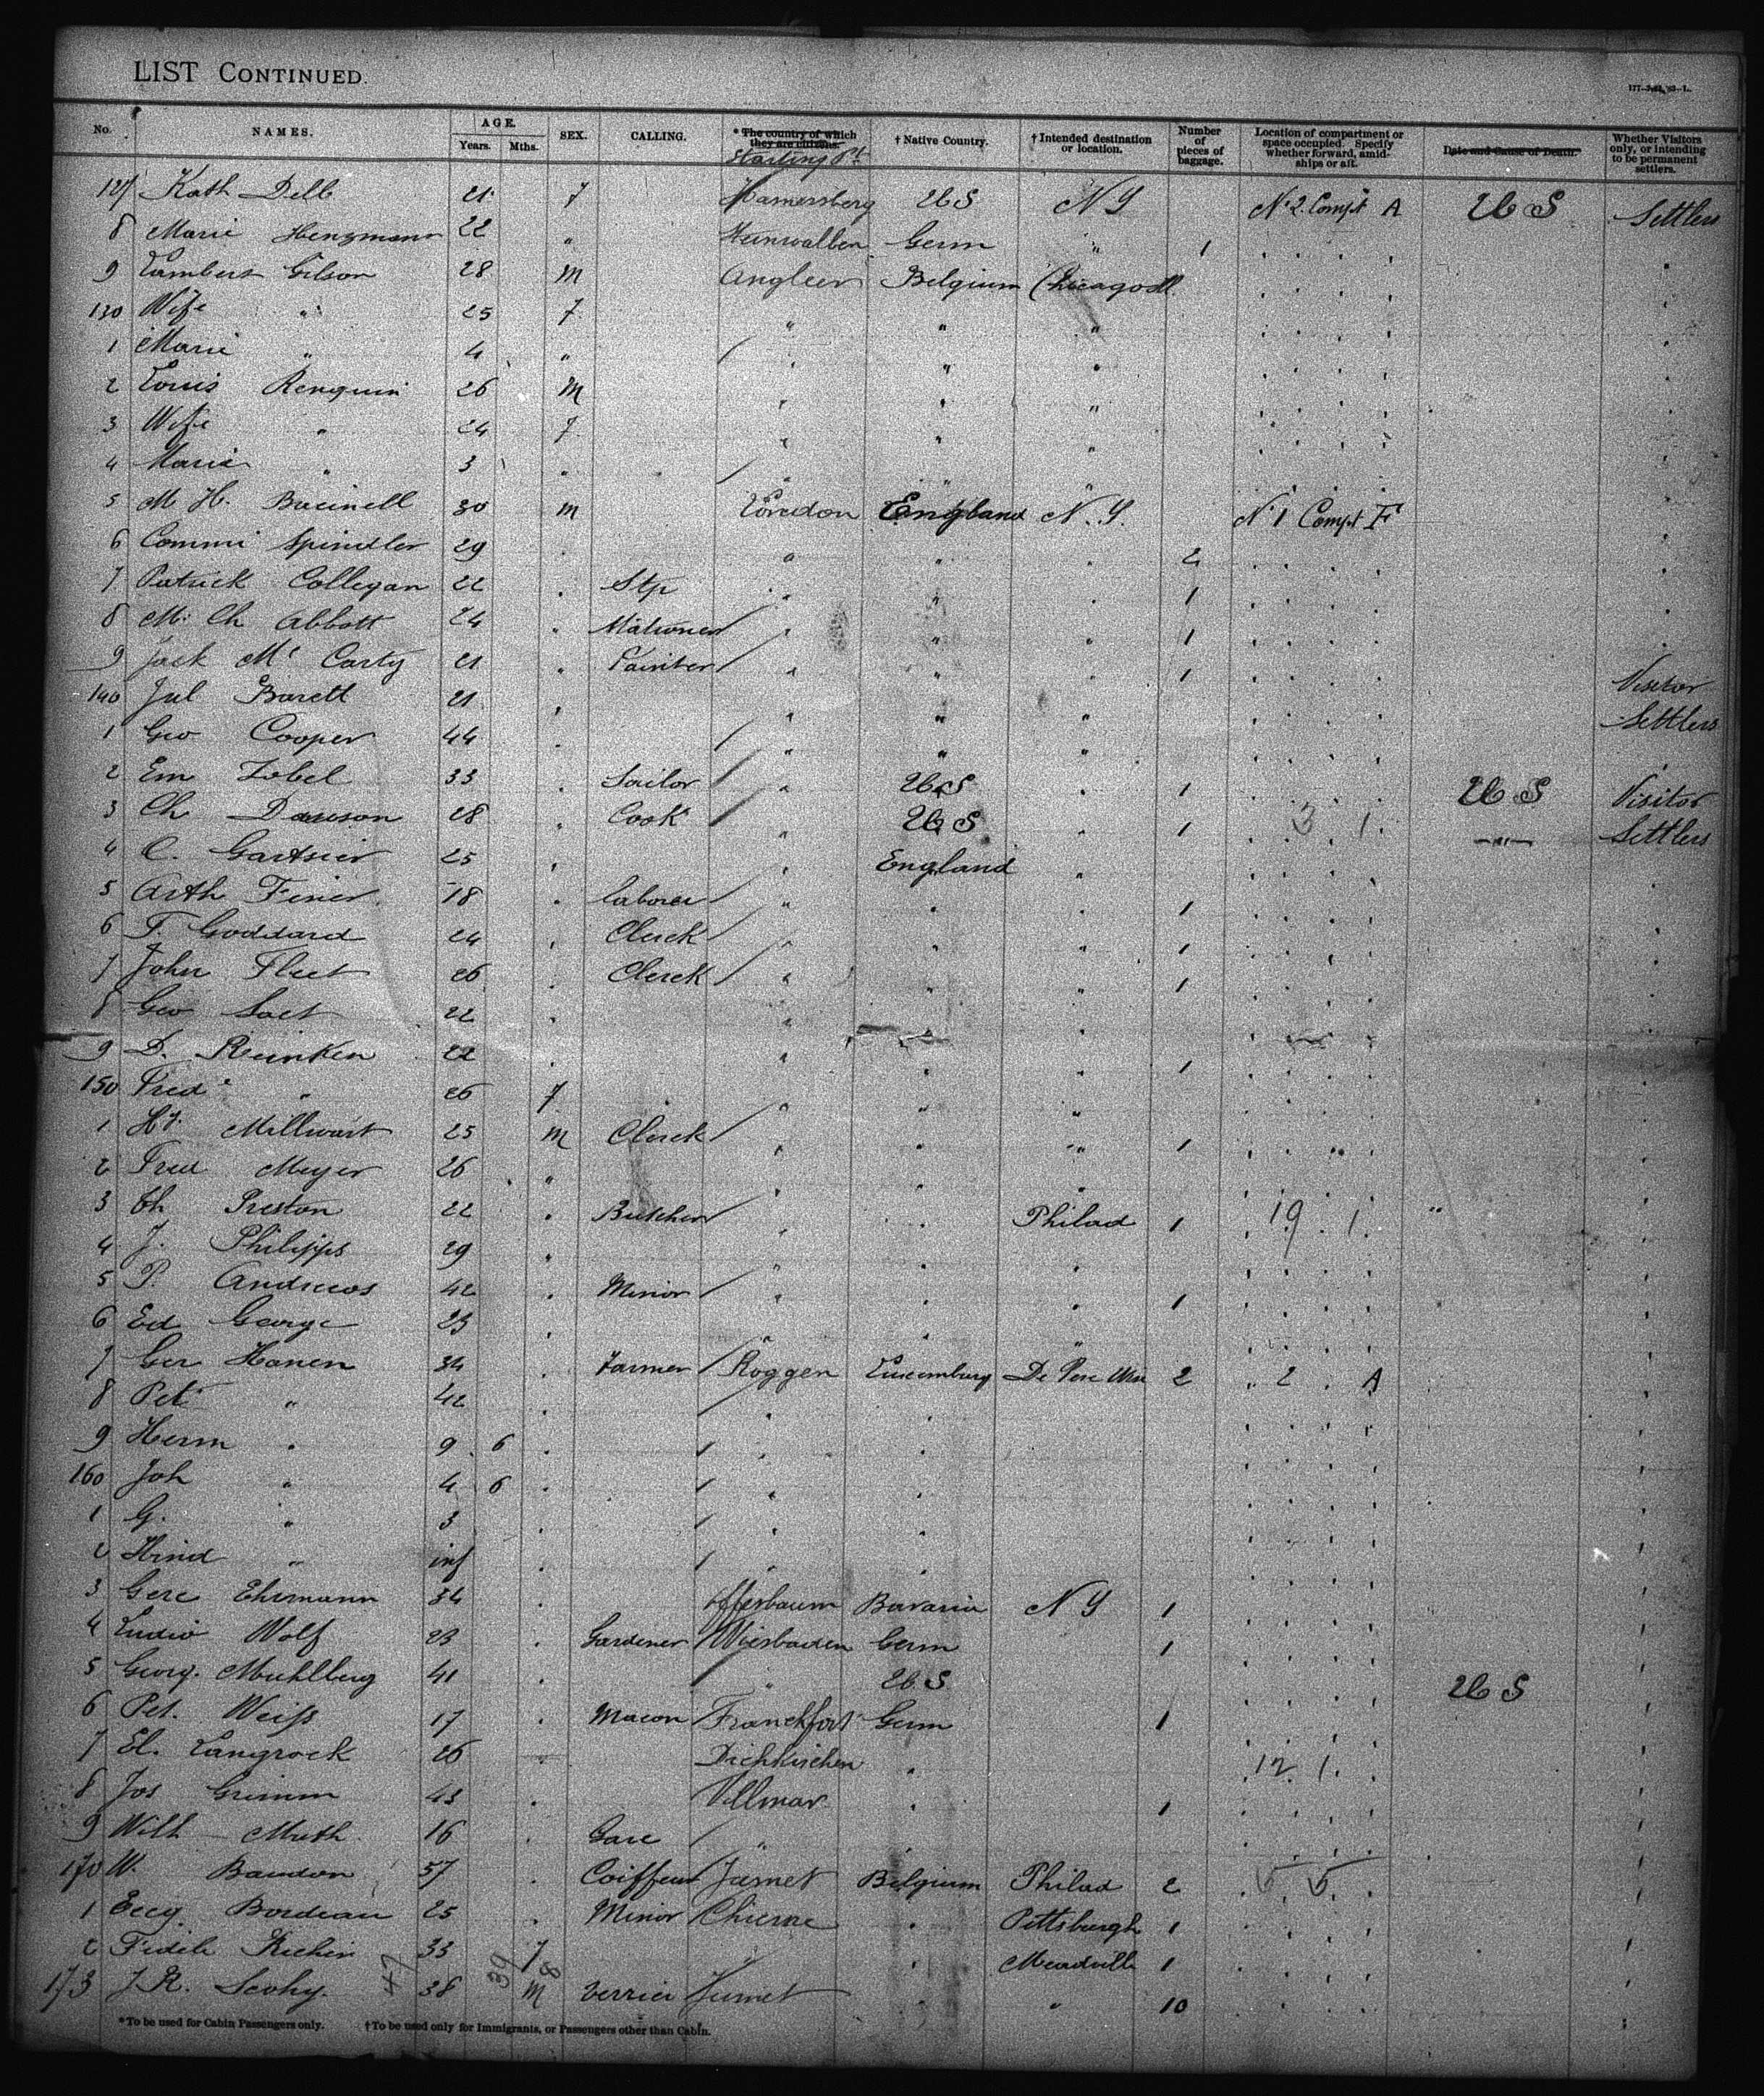 LIST CONTINUED.
177--
No. NAMES. AGE. Years. Mths. SEX. CALLING. * The country of which they are citizens. Starting Pt † Native Country. † Intended destination or location. Number of pieces of baggage. Location of compartment or space occupied. Specify whether forward, amidships or aft. Date and Cause of Death. Whether Visitors only, or intending to be permanent settlers.
127 Kath Dell 21 F US NY No 2 Compt A US Settlers
8 Marie 22 " Germ " 1
9 Lambert Gilson 28 M Angleur Belgium Chicago Ill
130 Wife " 25 F " " "
1 Marie " 4 " " " "
2 Louis Renquin 26 M " " "
3 Wife " 24 F " " "
4 Marie " 3 " " " "
5 M H. 30 M London England N.Y. No 1 Compt F
6 Spindler 29 " " " " 2
7 Patrick Collegan 22 " Stp " " " 1
8 M. Ch Abbott 24 " " " " 1
9 Jack Mc Carty 21 " Painter " " " 1 Visitor
140 Jul Barett 21 " " " " Settlers
1 Geo Cooper 44 " " " "
2 Em Zobel 33 " Sailor " US " 1 US Visitor
3 Ch Dawson 28 " Cook " US " 1 3 1 " Settlers
4 C. 25 " " England "
5 Arth 18 " laborer " " " 1
6 F. Goddard 24 " Clerck " " " 1
7 John Fleet 26 " Clerck " " " 1
8 Geo 22 " " " "
9 D. Reinken 22 " " " " 1
150 Fred " 26 F " " "
1 Hy. Millwart 25 M Clerck " " " 1
2 Fred Meyer 26 " " " "
3 Th Preston 22 " Butcher " " Philad 1 19 1
4 J. Philipps 29 " " " "
5 P. Andrews 42 " Minor " " " 1
6 Ed George 23 " " " "
7 Ger Hanen 34 " Farmer Roggen Luxemburg De Pere Wis 2 " 2 " A
8 Pet " 42 " " "
9 Herm " 9 6 " " "
160 Joh " 4 6 " " "
1 G. " 3 " " "
2 " inf " " "
3 Ehrmann 34 " Bavaria NY 1
4 Ludw Wolf 23 " Gardener Wiesbaden Germ 1
5 Georg. Muhlberg 41 " " US US
6 Pet. Weiss 17 " Macon Franckfort Germ 1
7 El. Langrock 26 Dichkirchen " 12 1
8 Jos Grimm 43 " Villmar " 1
9 Wilh Muth 16 " "
170 W. Baudon 57 " Coiffeur Jumet Belgium Philad 2 5 5
1 Bordeau 25 " Minor " Pittsburgh 1
2 Fidele Richir 33 F " " Meadville 1
173 J. R. Scohy. 38 M verrier Jumet " " 10
47 39 8
* To be used for Cabin Passengers only. † To be used only for Immigrants, or Passengers other than Cabin.